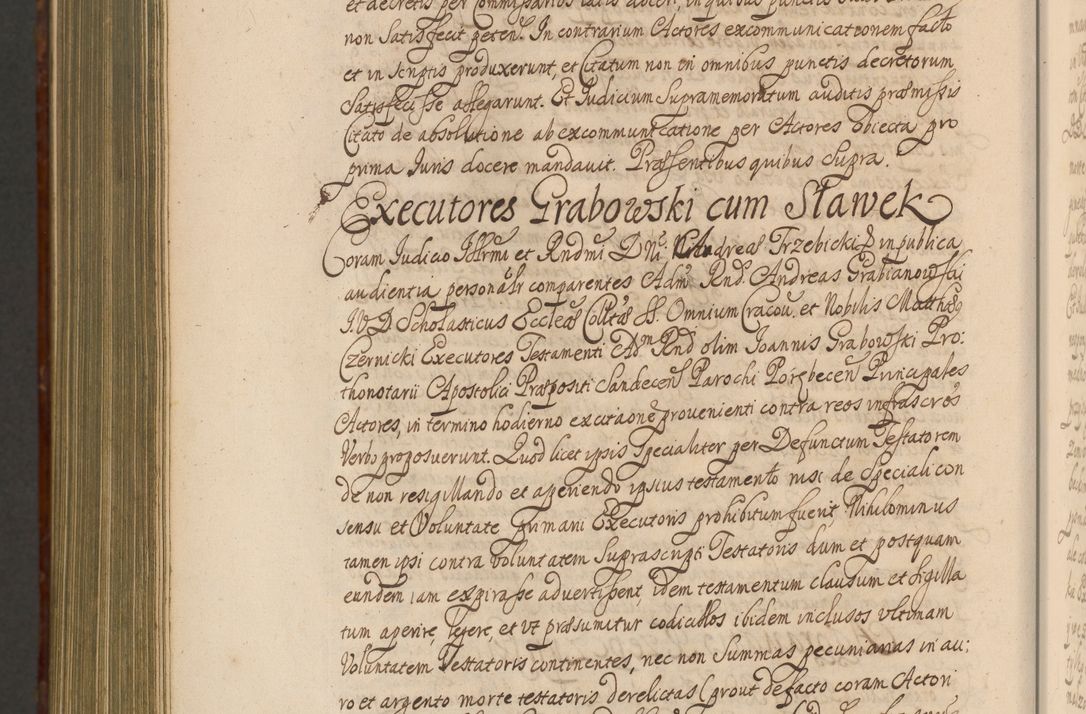 et decretis per Commissarios latis doceri, in quibus punctis
non satisfecit peten. In contrarium Actores excommunicationem facto
et in scriptis produxerunt, et Citatum non in omnibus punctis decretorum
satisfecisse allegarunt. Et Iudicium supramemoratum auditis præmissis
Citato de absolutione ab excommunicatione per Actores obiecta pro
prima Iuris docere mandavit. Præsentibus quibus supra.
Executores Grabowski cum Sławek
Coram Iudicio Illrmi et Rndmi Dni Andreas Trzebicki in publica
audientia personalr comparentes Adm Rnd. Andreas Grabianowski
I.V.D Scholasticus Eccleæ Collitæ SS. Omnium Cracou. et Nobilis Matthæ9
Czernicki Executores Testamenti Adm Rnd olim Ioannis Grabowski Pro:
thonotarii Apostolici Præpositi Sandecen Parochi Porębecen Principales
Actores, in termino hodierno ex citaone provenienti contra reos infrascros
Verbo proposuerunt. Quod licet ipsis specialiter per Defunctum Testatorem
de non resigillando et aperiendo ipsius testamento nisi de speciali con
sensu et Voluntate primarii Executoris prohibitum fuerit, Nihilominus
tamen ipsi contra voluntatem suprascripti Testatoris dum et postquam
eundem iam expirasse advertissent, idem testamentum clausum et sigilla
tum aperire, legere, et vt præsumitur codicillos ibidem inclusos vltimam
Voluntatem Testatoris continentes, nec non summas pecuniarias in au:
ro et argento morte testatoris derelictas (prout de facto coram Actori